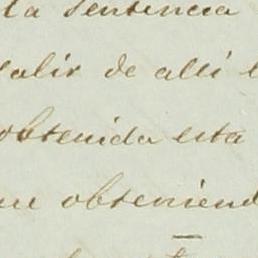 la sentencia
salir de alli
obtenida esta
que obteniend